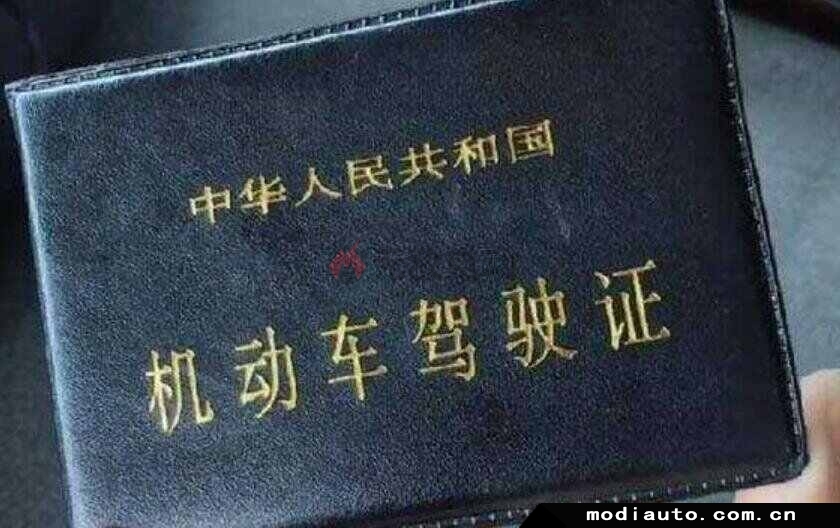 中华人民共和国
机动车驾驶证
modiauto.com.cn